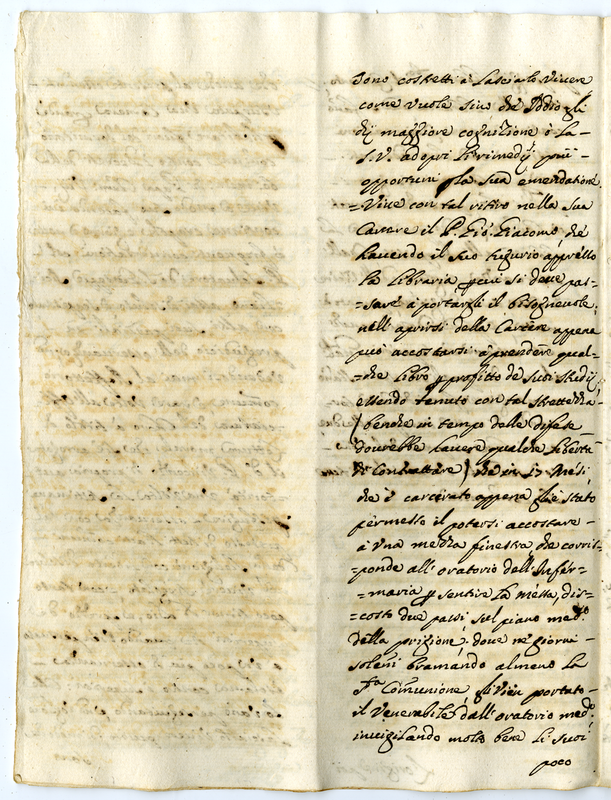 sono costretti à lasciarlo Vivere
come vuole sin che Iddio gli
dij maggiore cognizione ò la
S.V. adopri li rimedij più
opportuni p la sua emendatione.
=Vive con tal ritiro nella sua
Carcere il P. Gio. Giacomo, che
havendo il suo tugurio appresso
la Libraria p cui si deve pas=
=sare à portargli il bisognevole,
nell' aprirsi della Carcere appena
può accostarsi à prendere qual=
=che libro p profitto de suoi studij,
essendo tenuto con tal strettezza
(benche in tempo delle difese
dovrebbe havere qualche libertà
di Contrattare) che in 17 Mesi
che è carcerato appena gli è stato
permesso il potersi accostare
à una mezza finestra che corris=
=ponde all' oratorio dell' Infer=
=maria p sentire la messa, dis=
=costo due passi sul piano med.o
della prigione; dove ne giorni
soleni bramando almeno la
S.ta Comunione, gli vien portato
il Venerabile dall' oratorio med.o
invigilando molto bene li suoi
poco